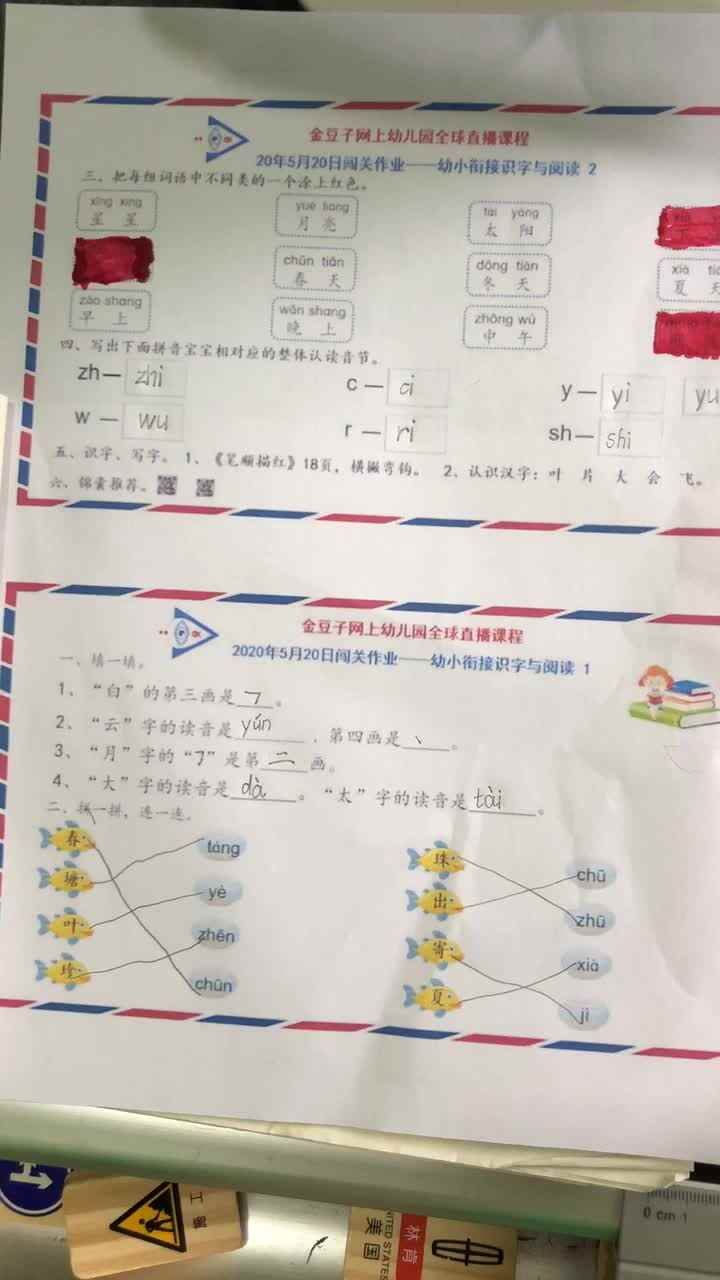 金豆子网上幼儿园全球直播课程
20年5月20日闯关作业——幼小衔接识字与阅读 2
三、把每组词语中不同类的一个涂上红色。
xīng xing yuè liang tài yáng xià
星 星 月 亮 太 阳 下
chūn tiān dōng tiān xià
春 天 冬 天 夏 天
zǎo shang wǎn shang zhōng wǔ
早 上 晚 上 中 午
四、写出下面拼音宝宝相对应的整体认读音节。
zh— zhi c— ci y— yi yu
w— wu r— ri sh— shi
五、识字、写字。 1、《笔顺描红》18页，横撇弯钩。 2、认识汉字：叶 片 大 会 飞。
六、锦囊推荐。
金豆子网上幼儿园全球直播课程
2020年5月20日闯关作业——幼小衔接识字与阅读 1
一、填一填。
1、“白”的第三画是㇕。
2、“云”字的读音是 yún ．第四画是丶。
3、“月”字的“㇆”是第二画。
4、“大”字的读音是dà。“太”字的读音是tài。
二、拼一拼，连一连。
春 táng 珠 chū
塘 yè 出 zhū
叶 zhēn 寄 xià
珍 chūn 夏 jì
工
林肯
UNITED STATES
美国
0 cm 1